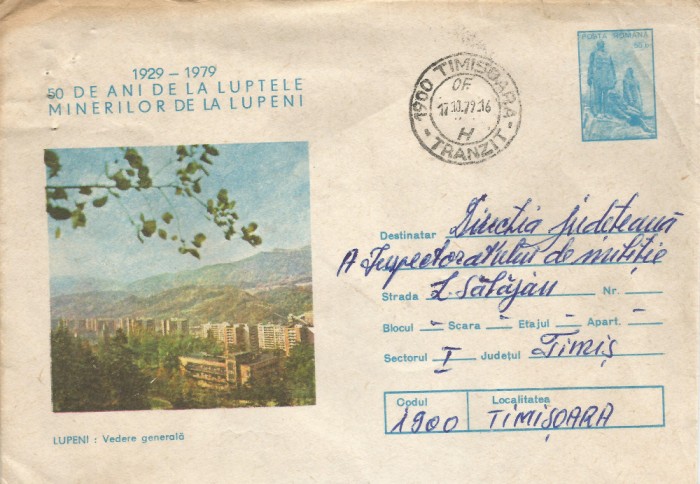 1929 - 1979
50 DE ANI DE LA LUPTELE
MINERILOR DE LA LUPENI
1900 TIMIȘOARA
OF.
17.10.79.16
H
* TRANZIT *
POSTA ROMANA
Destinatar Direcția Județeană
A Inspectoratului de miliție
Strada L. Sălăjan Nr. -
Blocul - Scara - Etajul - Apart. -
Sectorul I Județul Timiș
Codul Localitatea
1900 TIMIȘOARA
LUPENI : Vedere generală